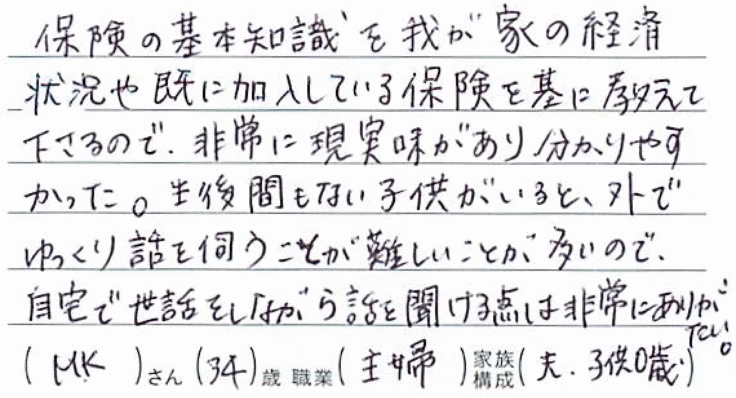 保険の基本知識を我が家の経済
状況や既に加入している保険を基に教えて
下さるので、非常に現実味があり分かりやす
かった。生後間もない子供がいると、外で
ゆっくり話を伺うことが難しいことが多いので、
自宅で世話をしながら話を聞ける点は非常にありが
たい。
(MK)さん(34)歳 職業(主婦)家族構成(夫、子供0歳)